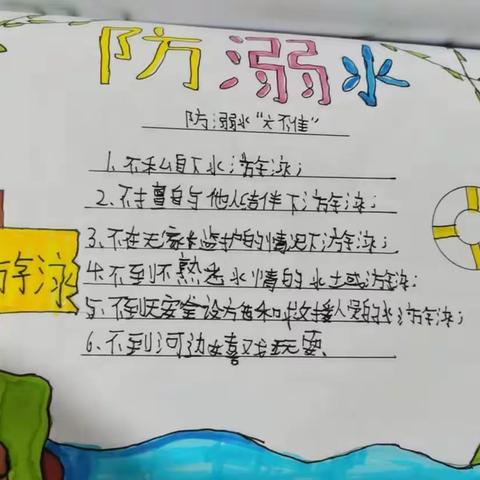 防溺水
防溺水“六不准”
1、不私自下水游泳；
2、不擅自与他人结伴下游泳；
3、不在无家长监护的情况下游泳；
4、不到不熟悉水情的水土或游泳；
5、不到无安全设方施和救援人员的水游泳；
6、不到河边嘻戏玩耍、
游泳